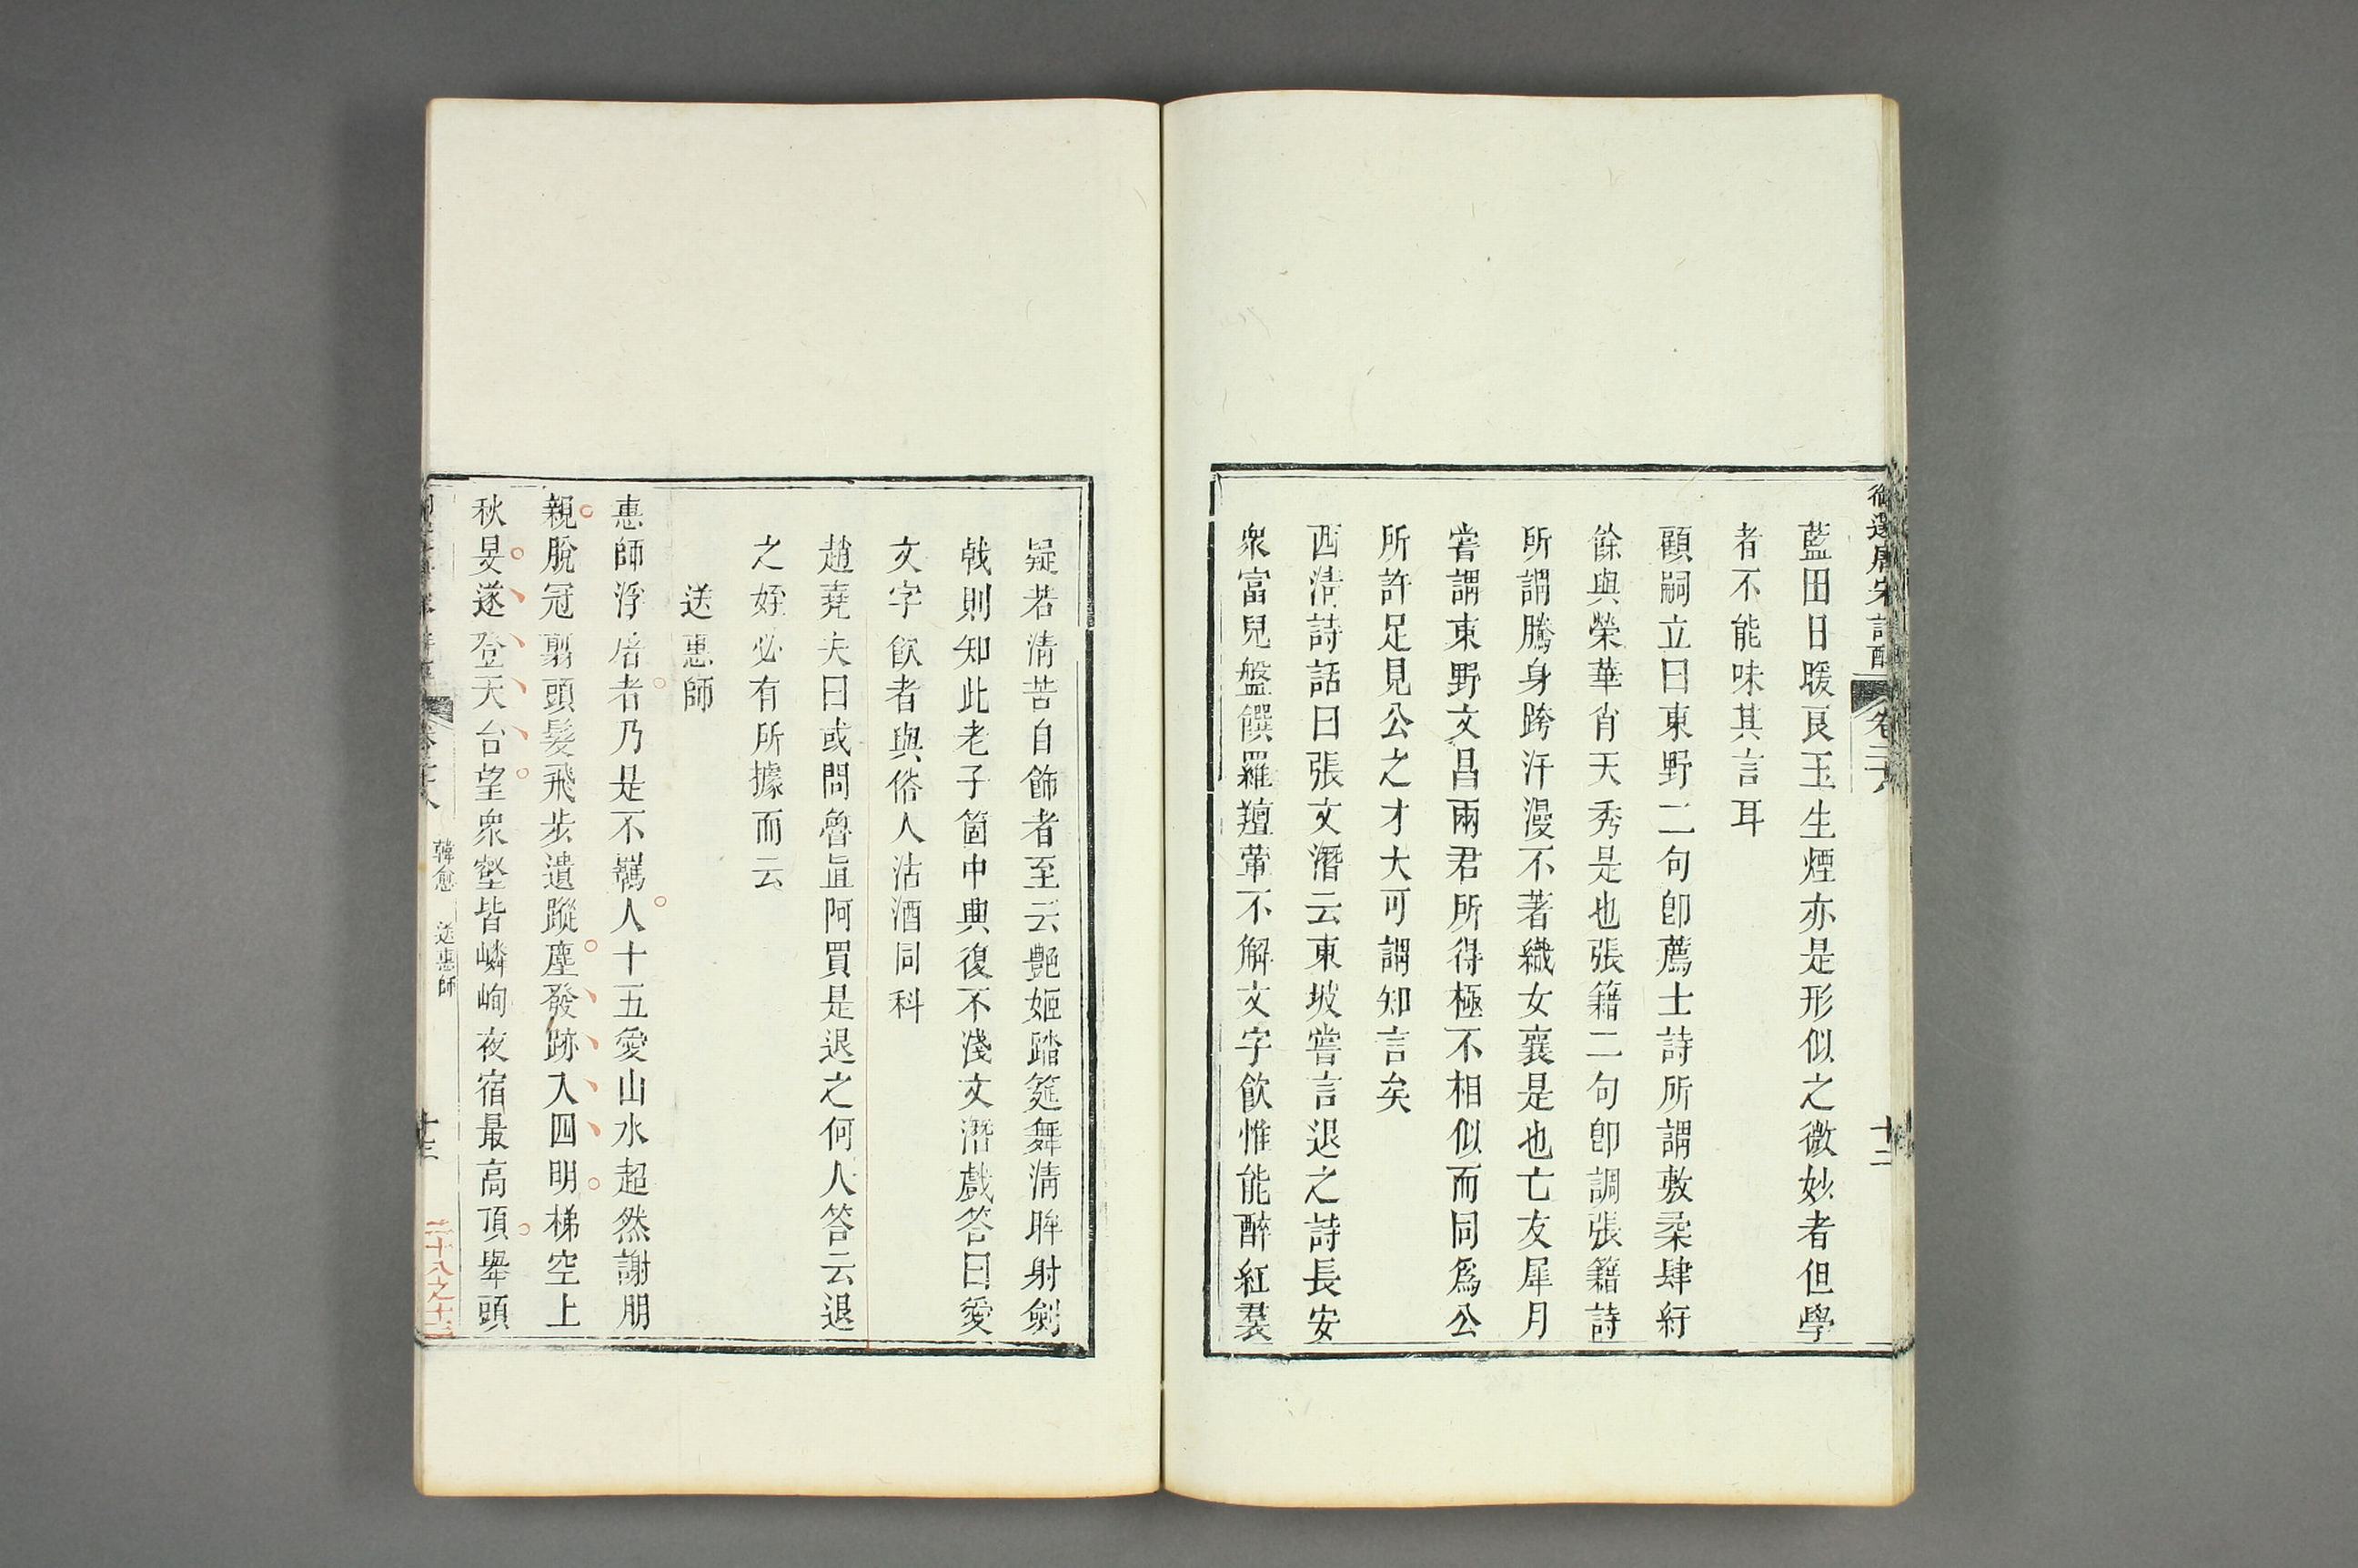 御選唐宋詩醇
卷二十八
十二
藍田日暖良玉生煙亦是形似之微妙者但學
者不能味其言耳
顧嗣立曰東野二句卽薦士詩所謂敷柔肆紆
餘與榮華肖天秀是也張籍二句卽調張籍詩
所謂騰身跨汗漫不著織女襄是也亡友犀月
嘗謂東野文昌兩君所得極不相似而同爲公
所許足見公之才大可謂知言矣
西淸詩話曰張文潛云東坡嘗言退之詩長安
衆富兒盤饌羅羶葷不解文字飮惟能醉紅裠
疑若淸苦自飾者至云艶姬踏筵舞淸眸射劍
戟則知此老子箇中典復不淺文潛戲答曰愛
文字飮者與俗人沽酒同科
趙堯夫曰或問魯直阿買是退之何人答云退
之姪必有所據而云
送惠師
惠師浮屠者乃是不羈人十五愛山水超然謝朋
親脫冠翦頭髮飛步遺蹤塵發跡入四明梯空上
秋旻遂登天台望衆壑皆嶙峋夜宿最高頂舉頭
韓愈 送惠師
十三
二十八之十三